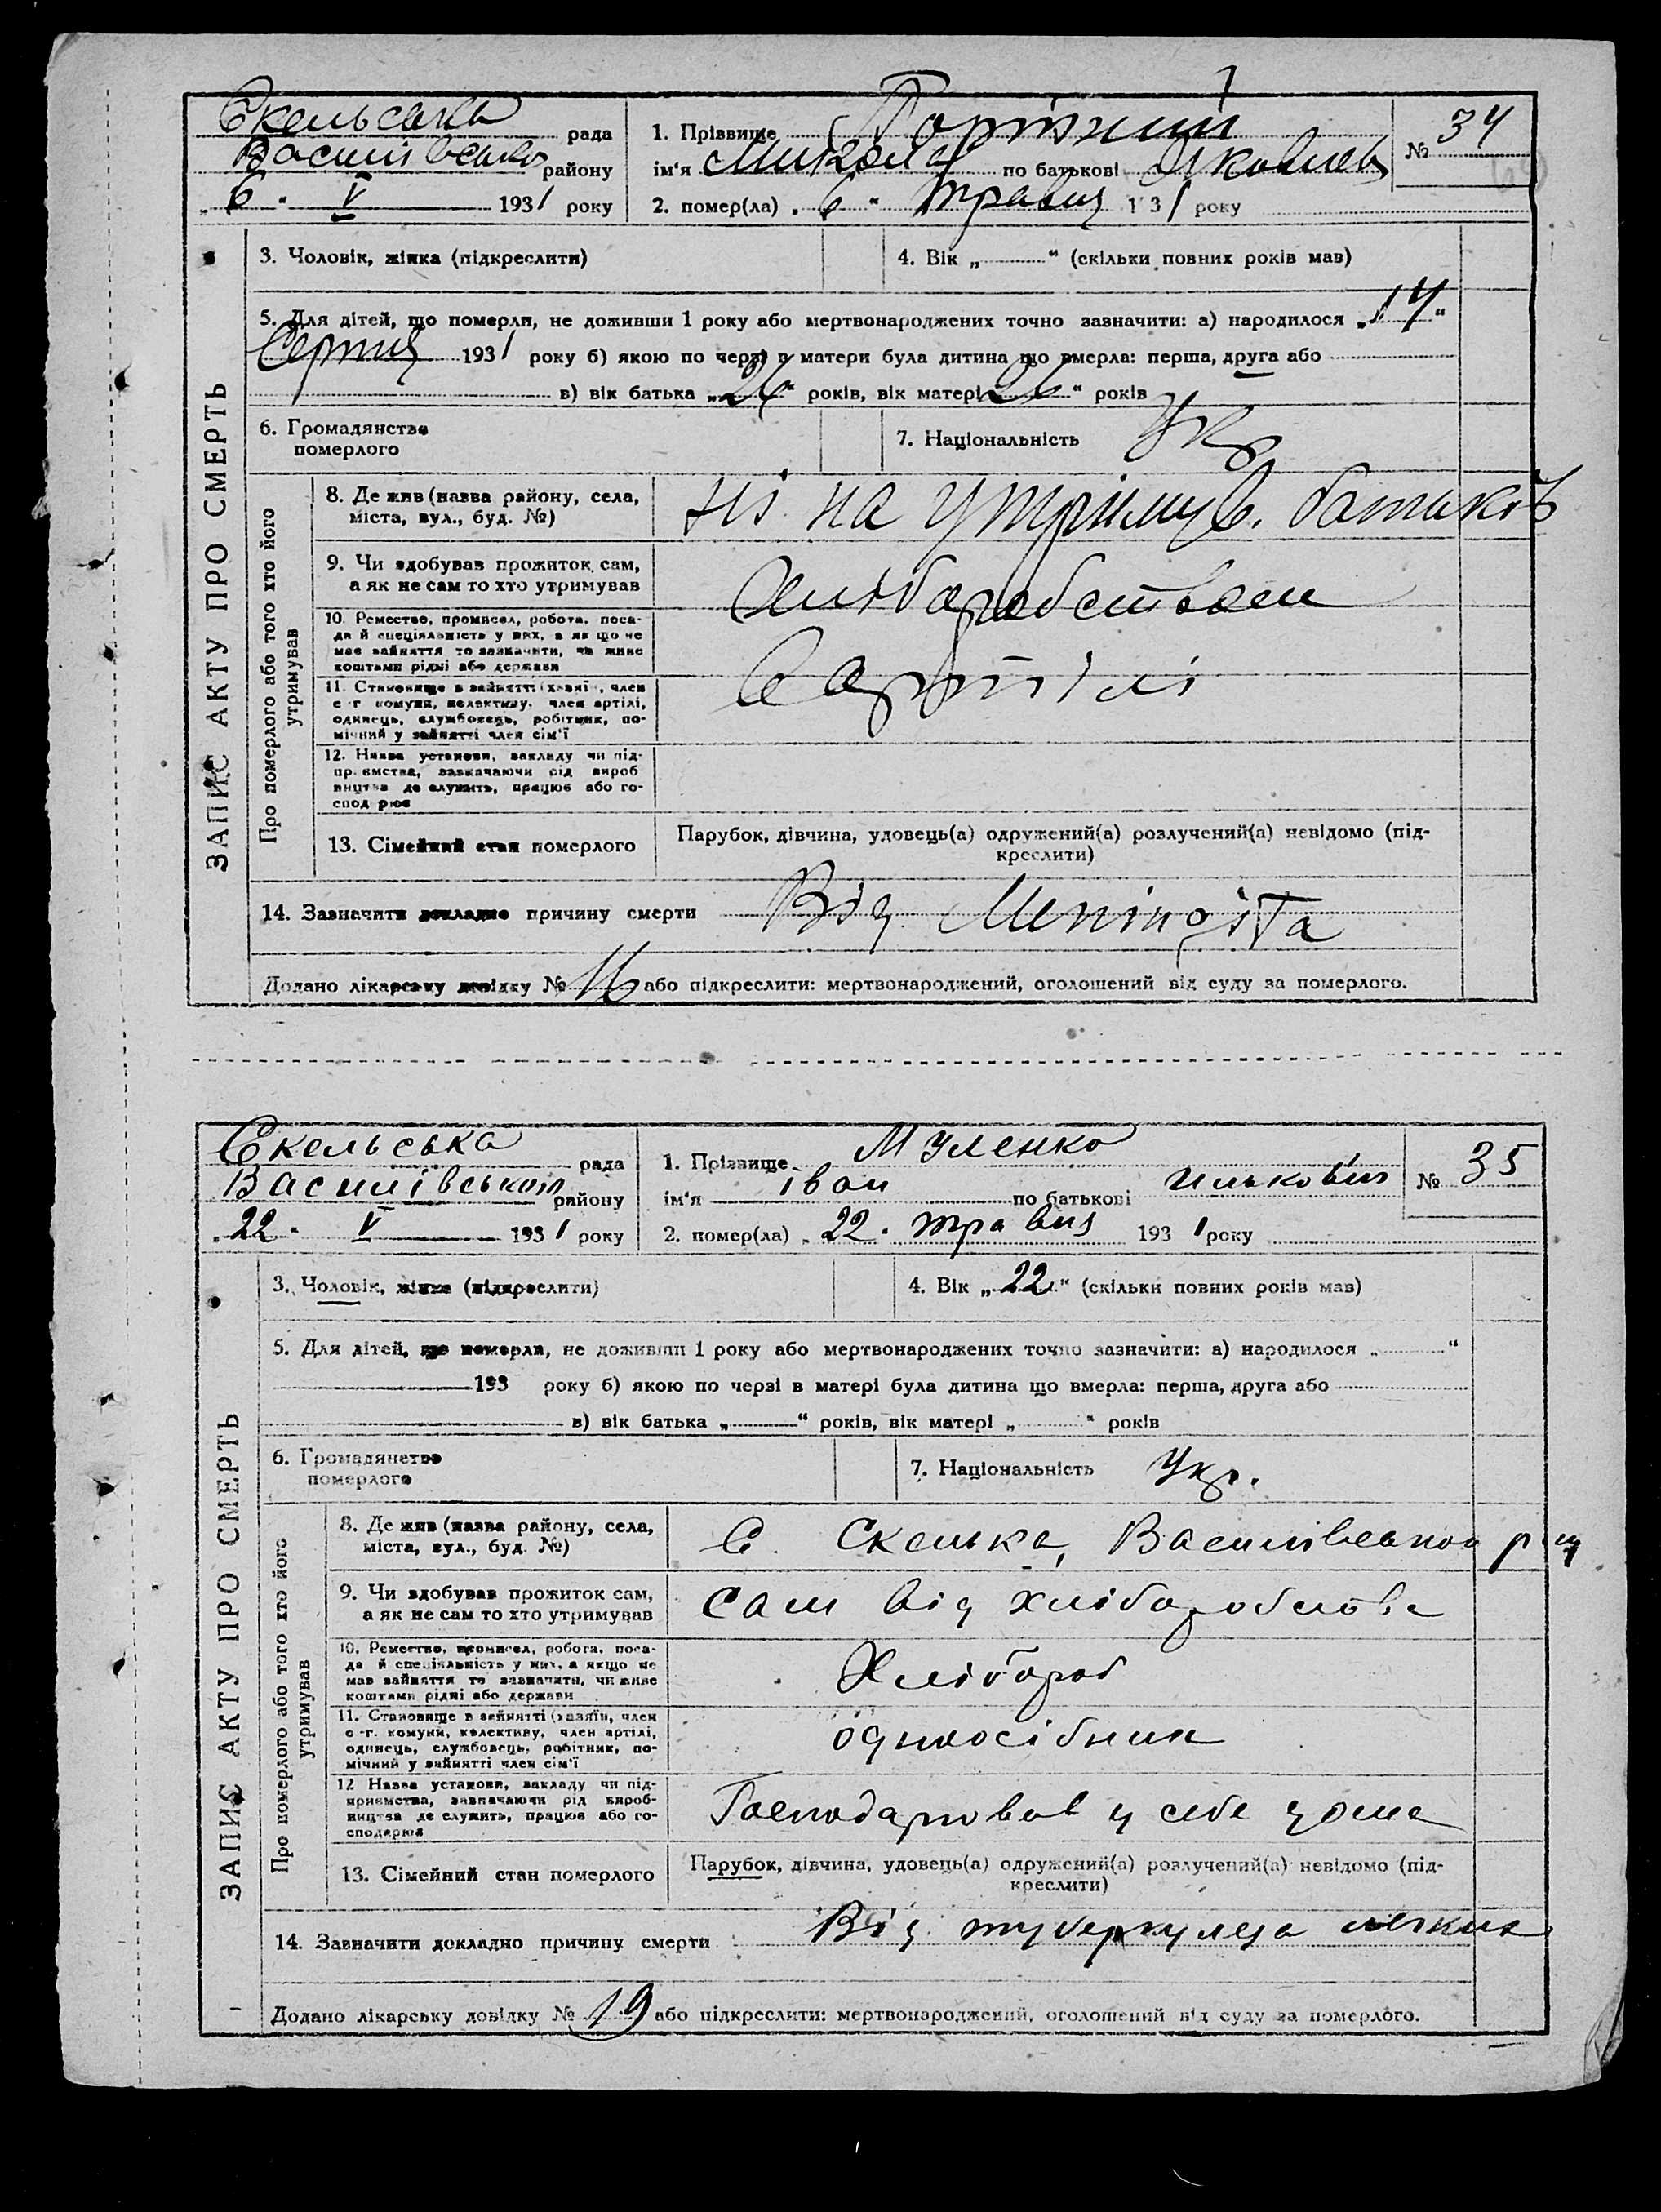 Скельська рада
Василівсько району
„ 6 “ V 1931 року
1. Прізвище
ім'я Микола по батькові Яковлев
2. помер(ла) „ 6 “ травня 1931 року
№ 34
ЗАПИС АКТУ ПРО СМЕРТЬ
3. Чоловік, жінка (підкреслити)
4. Вік „ “ (скільки повних років мав)
5. Для дітей, що померли, не доживши 1 року або мертвонароджених точно зазначити: а) народилося „14“
Серпня 1931 року б) якою по черзі в матери була дитина що вмерла: перша, друга або
в) вік батька „26“ років, вік матері „26“ років
6. Громадянство
померлого
7. Національність Укр
Про померлого або того хто його
утримував
8. Де жив (назва району, села,
міста, вул., буд. №)
ні на утримув. батьків
9. Чи здобував прожиток сам,
а як не сам то хто утримував
Хліборобством
10. Ремество, промисел, робота, поса-
да й спеціяльність у них, а як що не
має зайняття то зазначити, чи живе
коштами рідні або держави
в артілі
11. Становище в зайнятті (хазяїн, член
с.-г. комуни, колективу, член артілі,
одинець, службовець, робітник, по-
мічний у зайнятті член сім'ї
12. Назва установи, закладу чи під-
приємства, зазначаючи рід вироб
ництва де служить, працює або го-
сподрює
13. Сімейний стан померлого
Парубок, дівчина, удовець(а) одружений(а) розлучений(а) невідомо (під-
креслити)
14. Зазначити докладно причину смерти Від Менінгіта
Додано лікарську довідку № 16 або підкреслити: мертвонароджений, оголошений від суду за померлого.
Скельська рада
Василівського району
„ 22 “ V 1931 року
1. Прізвище Муленко
ім'я Іван по батькові Илькович
2. помер(ла) „ 22 “ травня 1931 року
№ 35
ЗАПИС АКТУ ПРО СМЕРТЬ
3. Чоловік, жінка (підкреслити)
4. Вік „22“ (скільки повних років мав)
5. Для дітей, що померли, не доживши 1 року або мертвонароджених точно зазначити: а) народилося „ “
193 року б) якою по черзі в матері була дитина що вмерла: перша, друга або
в) вік батька „ “ років, вік матері „ “ років
6. Громадянство
померлого
7. Національність Укр.
Про померлого або того хто його
утримував
8. Де жив (назва району, села,
міста, вул., буд. №)
С. Скелька, Василівського р-ну
9. Чи здобував прожиток сам,
а як не сам то хто утримував
сам від хліборобства
10. Ремество, промисел, робота, поса-
да й спеціяльність у них, а якщо не
мав зайняття то зазначити, чи живе
коштами рідні або держави
Хлібороб
11. Становище в зайнятті (хазяїн, член
с.-г. комуни, колективу, член артілі,
одинець, службовець, робітник, по-
мічний у зайнятті член сім'ї
одноосібник
12 Назва установи, закладу чи під-
приємства, зазначаючи рід вироб-
ництва де служить, працює або го-
сподарює
Господарював у себе дома
13. Сімейний стан померлого
Парубок, дівчина, удовець(а) одружений(а) розлучений(а) невідомо (під-
креслити)
14. Зазначити докладно причину смерти Від туберкульоза легких
Додано лікарську довідку № 19 або підкреслити: мертвонароджений, оголошений від суду за померлого.